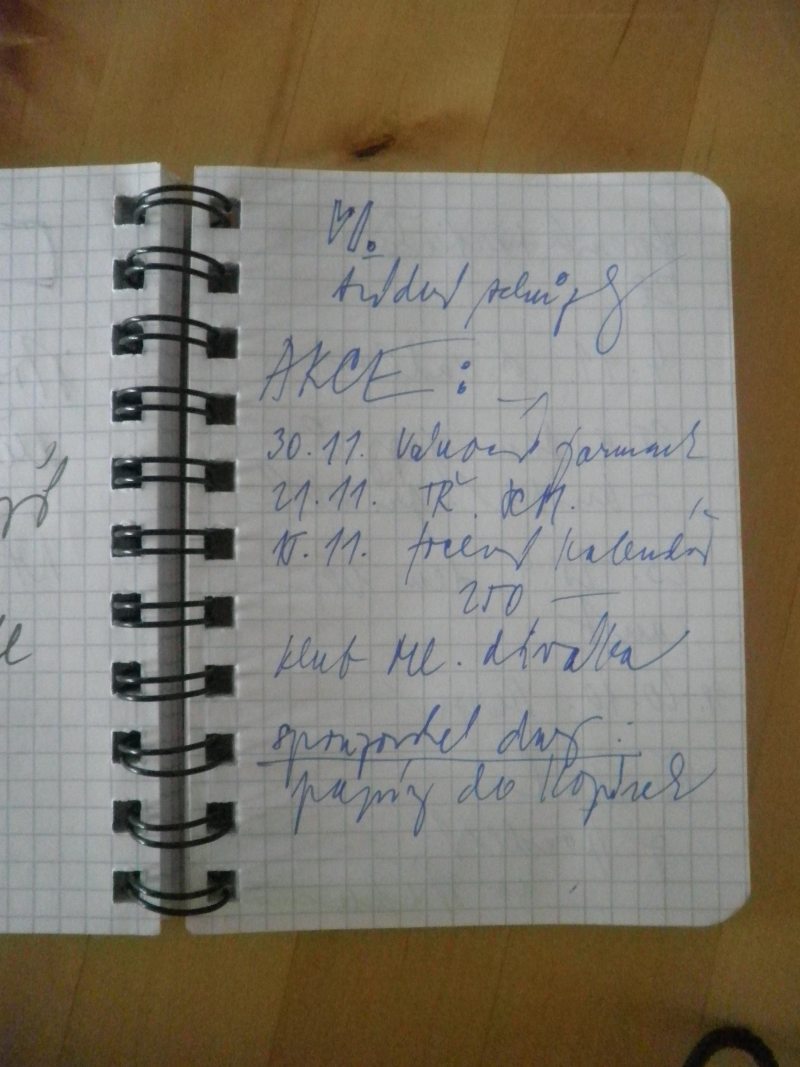 VI.
třídní schůzky
AKCE :
30.11. Vánoční jarmark
21.11. TŘ.
15.11. focení kalendář
250 —
klub ml. diváka
sponzorské dary :
papíry do kopírek